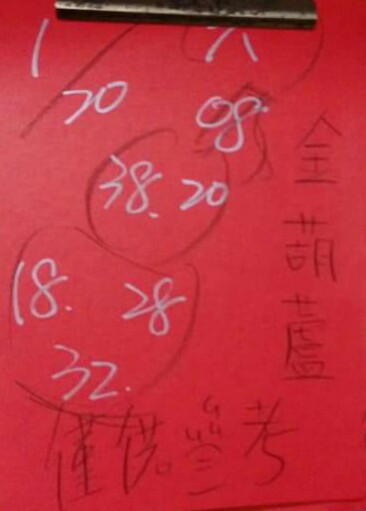 1 六
20 08.
38. 20
18. 28
32.
金葫蘆
僅供參考